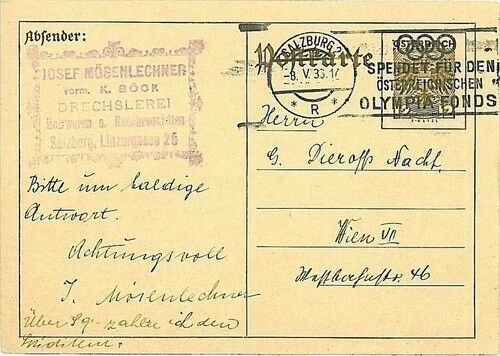 Absender:
JOSEF MÖSENLECHNER
vorm. K. BÖCK
DRECHSLEREI
Salzburg, Linzergasse 25
Bitte um baldige
Antwort.
Achtungsvoll
J. Mösenlechner
Über zahle ich den
Postkarte
SALZBURG 2
8. V. 36
* R *
ÖSTERREICH
SPENDET FÜR DEN
ÖSTERREICHISCHEN
OLYMPIA FONDS
Herrn
G. Nacht,
Wien VII
46